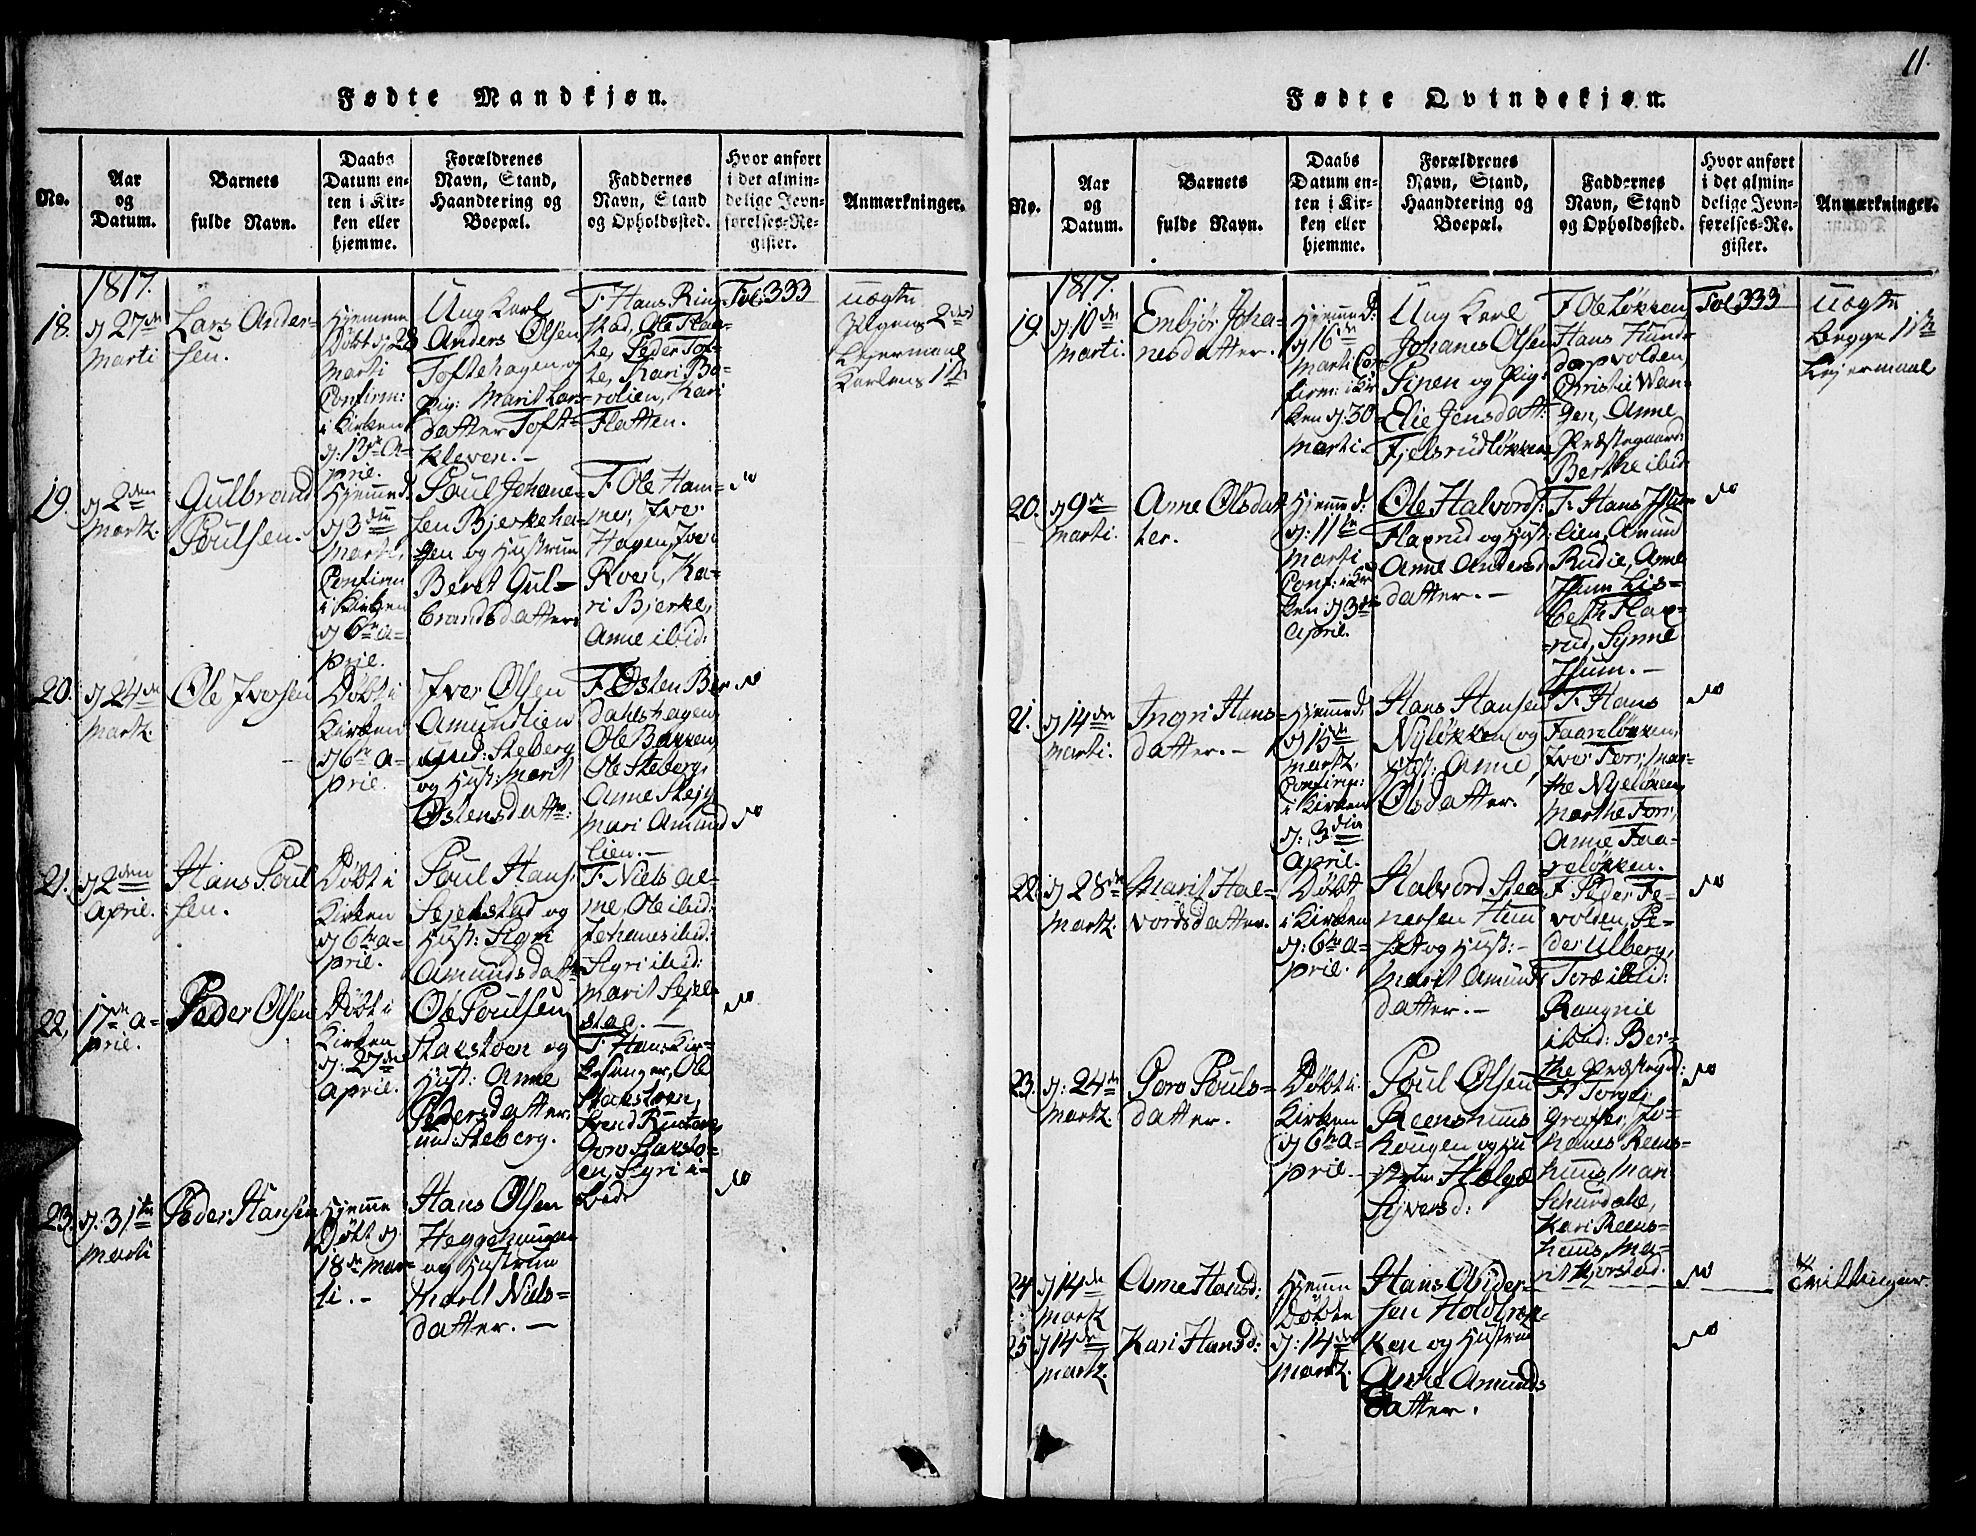 11.
Fødte Mandkjøn.
No.
Aar
og
Datum.
Barnets
fulde Navn.
Daabs
Datum en-
ten i Kir-
ken eller
hjemme.
Forældrenes
Navn, Stand,
Haandtering og
Boepæl.
Faddernes
Navn, Stand
og Opholdssted.
Hvor anført
i det almin-
delige Jevn-
førelses-Re-
gister.
Anmærkninger.
1817.
18.
d 27de
Marti
Lars Ander-
sen.
Hjemme
Døbt d 28
Marti
Confirm:
i Kirken
d: 13de A-
pril.
Ung Karl
Anders Olsen
Toftehagen og
Pig: Marit Lars-
datter Toft-
kleven.
F. Hans Ring-
stad, Ole Flaa-
te, Peder Tof-
te, Kari Ba-
rolien, Kari
Flatten.
Fol. 333
uægte
Pigens 2det
Leiermaal
Karlens 1te
19.
d 2den
Martz.
Gulbrand
Poulsen.
Hjemmed:
d 3die
Marti,
Confirm
i Kirken
d 6te A-
pril.
Poul Johane-
sen Bjerkeha-
gen og Hustrue
Beret Gul-
brandsdatter
F. Ole Ham-
mer, Iver
Hagen, Iver
Kven, Ka-
ri Bjerke,
Anne ibid:
20.
d 24de
Martz.
Ole Iversen
Døbt i
Kirken
d 6te A-
pril.
Iver Olsen
Amundlien
und: Steberg
og Hust: Marit
Østensdattr:
F. Østen Ber
dahlshagen,
Ole Bakken
Ole Steberg,
Anne Steig
Mari Amund
lien.
21.
d 2den
April.
Hans Poul
sen.
Døbt i
Kirken
d 6te A-
pril.
Poul Hans:
Sejelstad og
Hust: Sigri
Amundsdatt
F. Niels Al-
me, Ole ibid:
Johannes ibid:
Sigri ibid:
Marit Sejel
stad.
22.
17de A-
pril.
Peder Olsen
Døbt i
Kirken
d: 27de
April.
Ole Poulsen
Stacstoen og
Hust: Anne
Pedersdatter
und Steberg.
F. Hans Kir-
kesanger, Ole
Stacstoen,
Svend Rustaen
Goro Stacsto-
en, Sigri i-
bid:
23.
d: 31te
Marti
Peder Hansen
Hjemme
Døbt d
18de Mar-
ti.
Hans Olsen
Heggehaugen
og Hustrue
Marit Niels-
datter.
Fødte Qvindekjøn.
No.
Aar
og
Datum.
Barnets
fulde Navn.
Daabs
Datum en-
ten i Kir-
ken eller
hjemme.
Forældrenes
Navn, Stand,
Haandtering og
Boepæl.
Faddernes
Navn, Stand
og Opholdssted.
Hvor anført
i det almin-
delige Jevn-
førelses-Re-
gister.
Anmærkninger.
1817.
19.
d: 10de
Marti.
Embjør Joha-
nesdatter.
Hjemme d:
d 16de
Marti Con-
firm: i Kir
ken d: 30
Marti.
Ung Karl
Johanes Olsen
Pinen og Pig:
Elie Jensdatt:
Fjelsrudløkken
F. Ole Løkken
Hans Hund-
dorpvolden,
Christie Wan-
gen, Anne
Præstegaard:
Berthe ibid
Fol 333
uægte
begge 1te
Lejermaal
20.
d 9de
Marti.
Anne Olsdat
ter.
Hjemme d:
d: 11te
Marti
Conf: i Kir
ken d 3die
April.
Ole Halvords:
Flaprud og Hust:
Anne Anders
datter.
F. Hans Thum-
lien, Amund
Rudie, Anne
Thum Lis-
beth Flap-
rud, Synne
Thum.
21.
d 14de
Marti.
Ingri Hans-
datter.
Hjemmed:
d 15de
Martz.
Confirm:
i Kirken
d: 3die
April.
Hans Hansen
Nyløkken og
Hust: Anne
Olsdatter.
F. Hans
Faareløkken,
Iver Forr, Mar-
the Nyeløkken,
Marthe Forr,
Anne Faa-
reløkken.
22.
d 28de
Martz.
Marit Hal-
vordsdatter.
Døbt
i Kirken
d: 6te A-
pril.
Halvord Stee
nersen Hun
og Hust:
Marit Amunds
datter.
F. Peder Fe-
volden, Pe-
der Ulberg,
Toræ ibid:
Rangnil
ibid: Ber-
the Præstegrd:
23.
d: 24de
Martz.
Goro Pouls-
datter.
Døbt i
Kirken
d 6te A-
pril.
Poul Olsen
Reenshuus
Hougen og Hu
strue Helge
Syversd:
F. Torger
Græffer, Jo-
hannes Reens-
huus, Mari
Schurdale,
Kari Reens-
huus, Ma-
rit Kjorstad.
24.
d 14de
Martz
Anne Hansd:
Hjemme
Døbte
d: 14de
Martz.
Hans Ovider-
sen Holdtrøk-
ken og Hustrue
Anne Amunds
datter.
Tvillinger
25.
d 14de
Martz.
Kari Hansd: